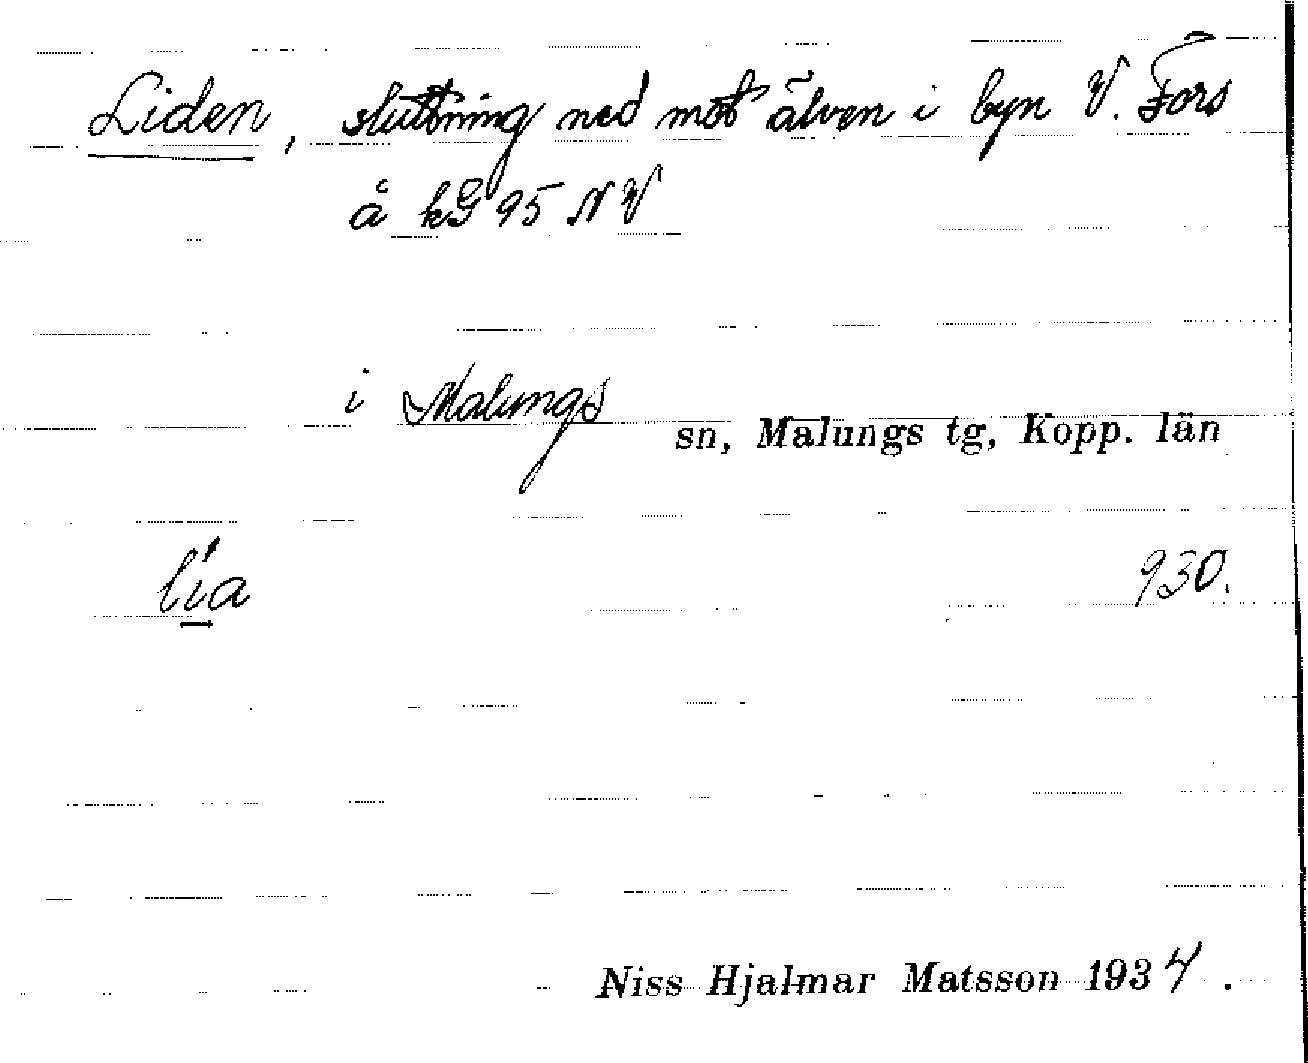 Liden, sluttning ned mot älven i byn V. Fors
å kG 95 NV
i Malungs sn, Malungs tg, Kopp. län
lía 930.
Niss Hjalmar Matsson 1934.